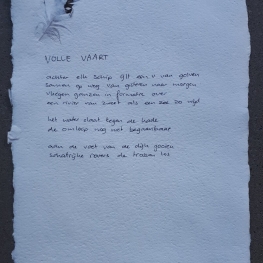 VOLLE VAART
achter elk schip ijlt een v van golven
samen op weg van gisteren naar morgen
vliegen ganzen in formatie over
een rivier van zweet als een zee zo wijd
het water slaat tegen de kade
de omloop nog niet begaanbaar
aan de voet van de dijk gooien
schatrijke rovers de trossen los